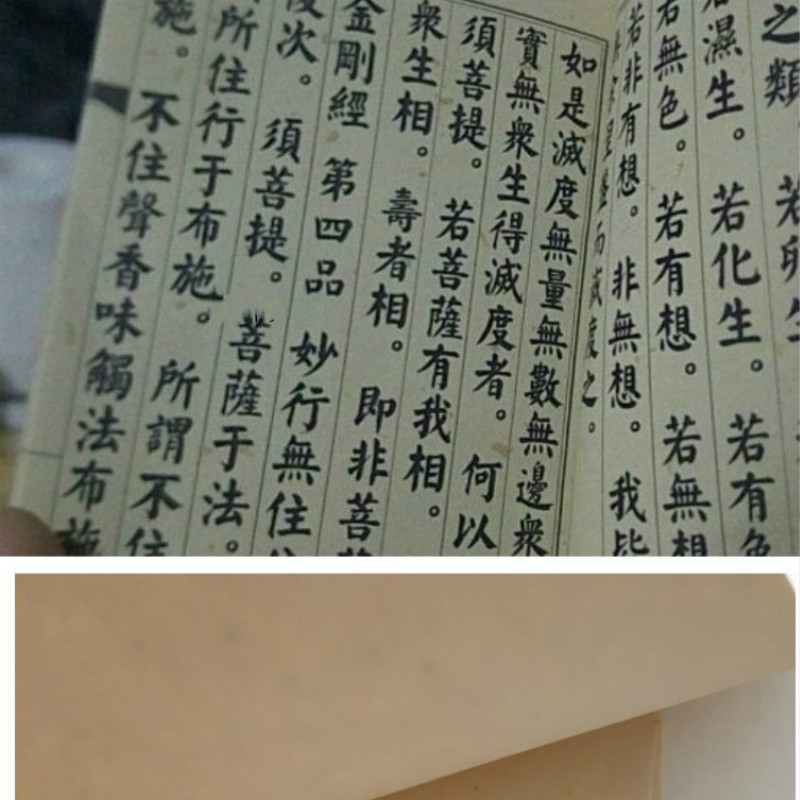 之類。若卵生
若濕生。若化生。若有色
若無色。若有想。若無想
若非有想。非無想。我皆
而滅度之。
如是滅度無量無數無邊衆
實無衆生得滅度者。何以
須菩提。若菩薩有我相。
衆生相。壽者相。即非菩
金剛經 第四品 妙行無住
復次。須菩提。菩薩于法。
所住行于布施。所謂不住
施。不住聲香味觸法布施